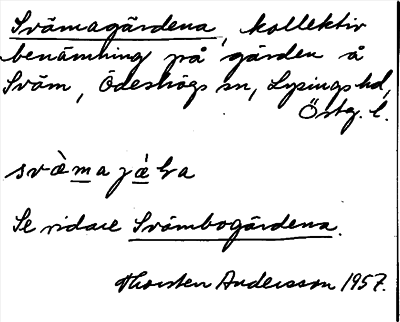 Svämagårdena, kollektiv
benämning på gården å
Sväm, Ödeshögs sn, Lysings hd,
Östg. l.
Se vidare Svämbogårdena.
Thorsten Andersson 1957.